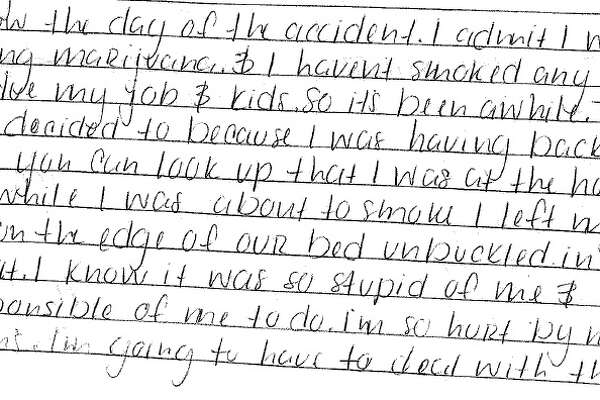 the day of the accident. I admit I
marijuana. & I havent smoked any
my job & kids. so its been awhile.
decided to because I was having back
you can look up that I was at the
while I was about to smoke I left
the edge of our bed unbuckled. in
I know it was so stupid of me &
of me to do. i'm so hurt by
I'm going to have to deal with